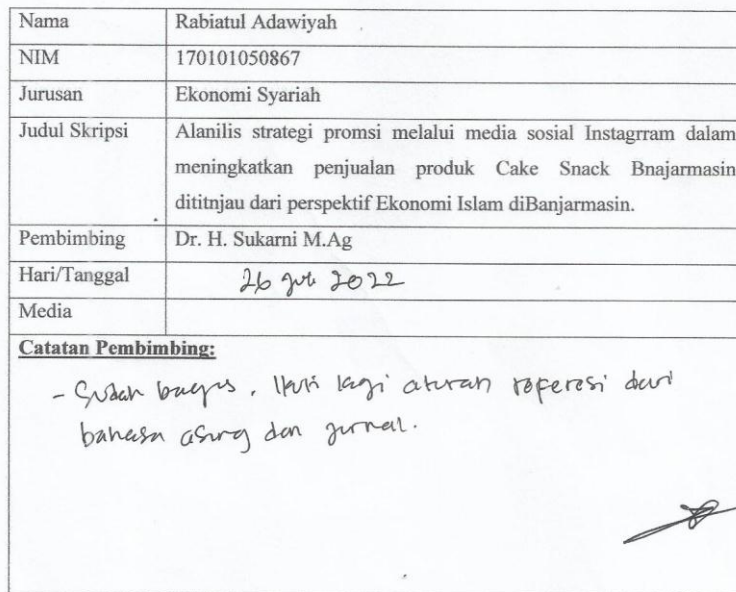 Nama Rabiatul Adawiyah
NIM 170101050867
Jurusan Ekonomi Syariah
Judul Skripsi Alanilis strategi promsi melalui media sosial Instagrram dalam
meningkatkan penjualan produk Cake Snack Bnajarmasin
dititnjau dari perspektif Ekonomi Islam diBanjarmasin.
Pembimbing Dr. H. Sukarni M.Ag
Hari/Tanggal 26 2022
Media
Catatan Pembimbing:
- Sudah bagus, lagi aturan referesi dari
bahasa asing dan jurnal.